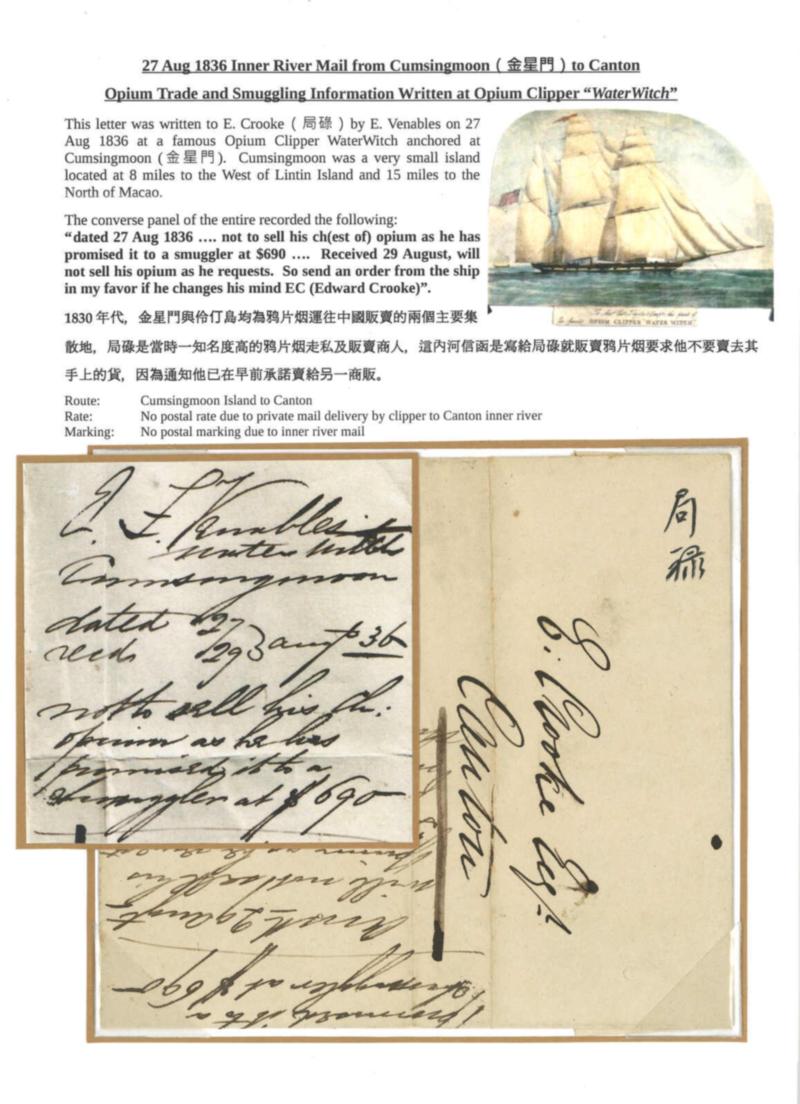 27 Aug 1836 Inner River Mail from Cumsingmoon ( 金星門 ) to Canton
Opium Trade and Smuggling Information Written at Opium Clipper “WaterWitch”
This letter was written to E. Crooke ( 局碌 ) by E. Venables on 27
Aug 1836 at a famous Opium Clipper WaterWitch anchored at
Cumsingmoon ( 金星門 ). Cumsingmoon was a very small island
located at 8 miles to the West of Lintin Island and 15 miles to the
North of Macao.
The converse panel of the entire recorded the following:
“dated 27 Aug 1836 …. not to sell his ch(est of) opium as he has
promised it to a smuggler at $690 …. Received 29 August, will
not sell his opium as he requests. So send an order from the ship
in my favor if he changes his mind EC (Edward Crooke)”.
OPIUM CLIPPER WATER WITCH
1830 年代，金星門與伶仃島均為鴉片烟運往中國販賣的兩個主要集
散地，局碌是當時一知名度高的鴉片烟走私及販賣商人，這內河信函是寫給局碌就販賣鴉片烟要求他不要賣去其
手上的貨，因為通知他已在早前承諾賣給另一商販。
Route: Cumsingmoon Island to Canton
Rate: No postal rate due to private mail delivery by clipper to Canton inner river
Marking: No postal marking due to inner river mail
E. F. Venables
water witch
Cumsingmoon
dated 27
recd 29 } augt 36
not to sell his Ch:
opium as he has
promised it to a
smuggler at $690
局
碌
E. Crooke Esqr.
Canton
will not sell his
smuggler at $690
promised it to a